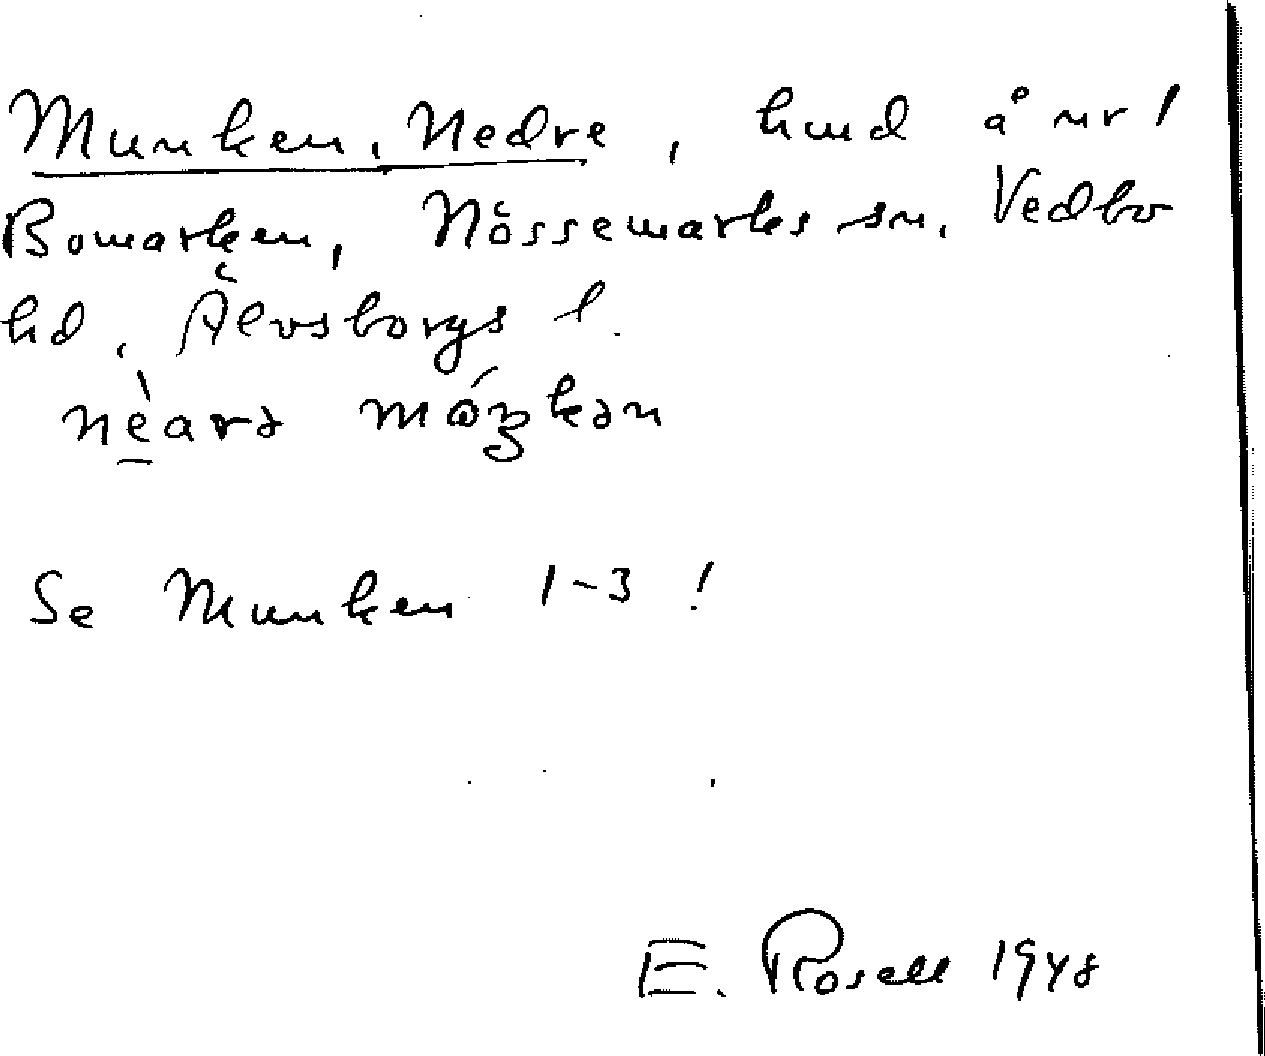 Munken, Nedre, hmd å nr 1
Bomarken, Nössemarks sn. Vedbo
hd, Älvsborgs l.
Se Munken 1-3!
E. Rosell 1948